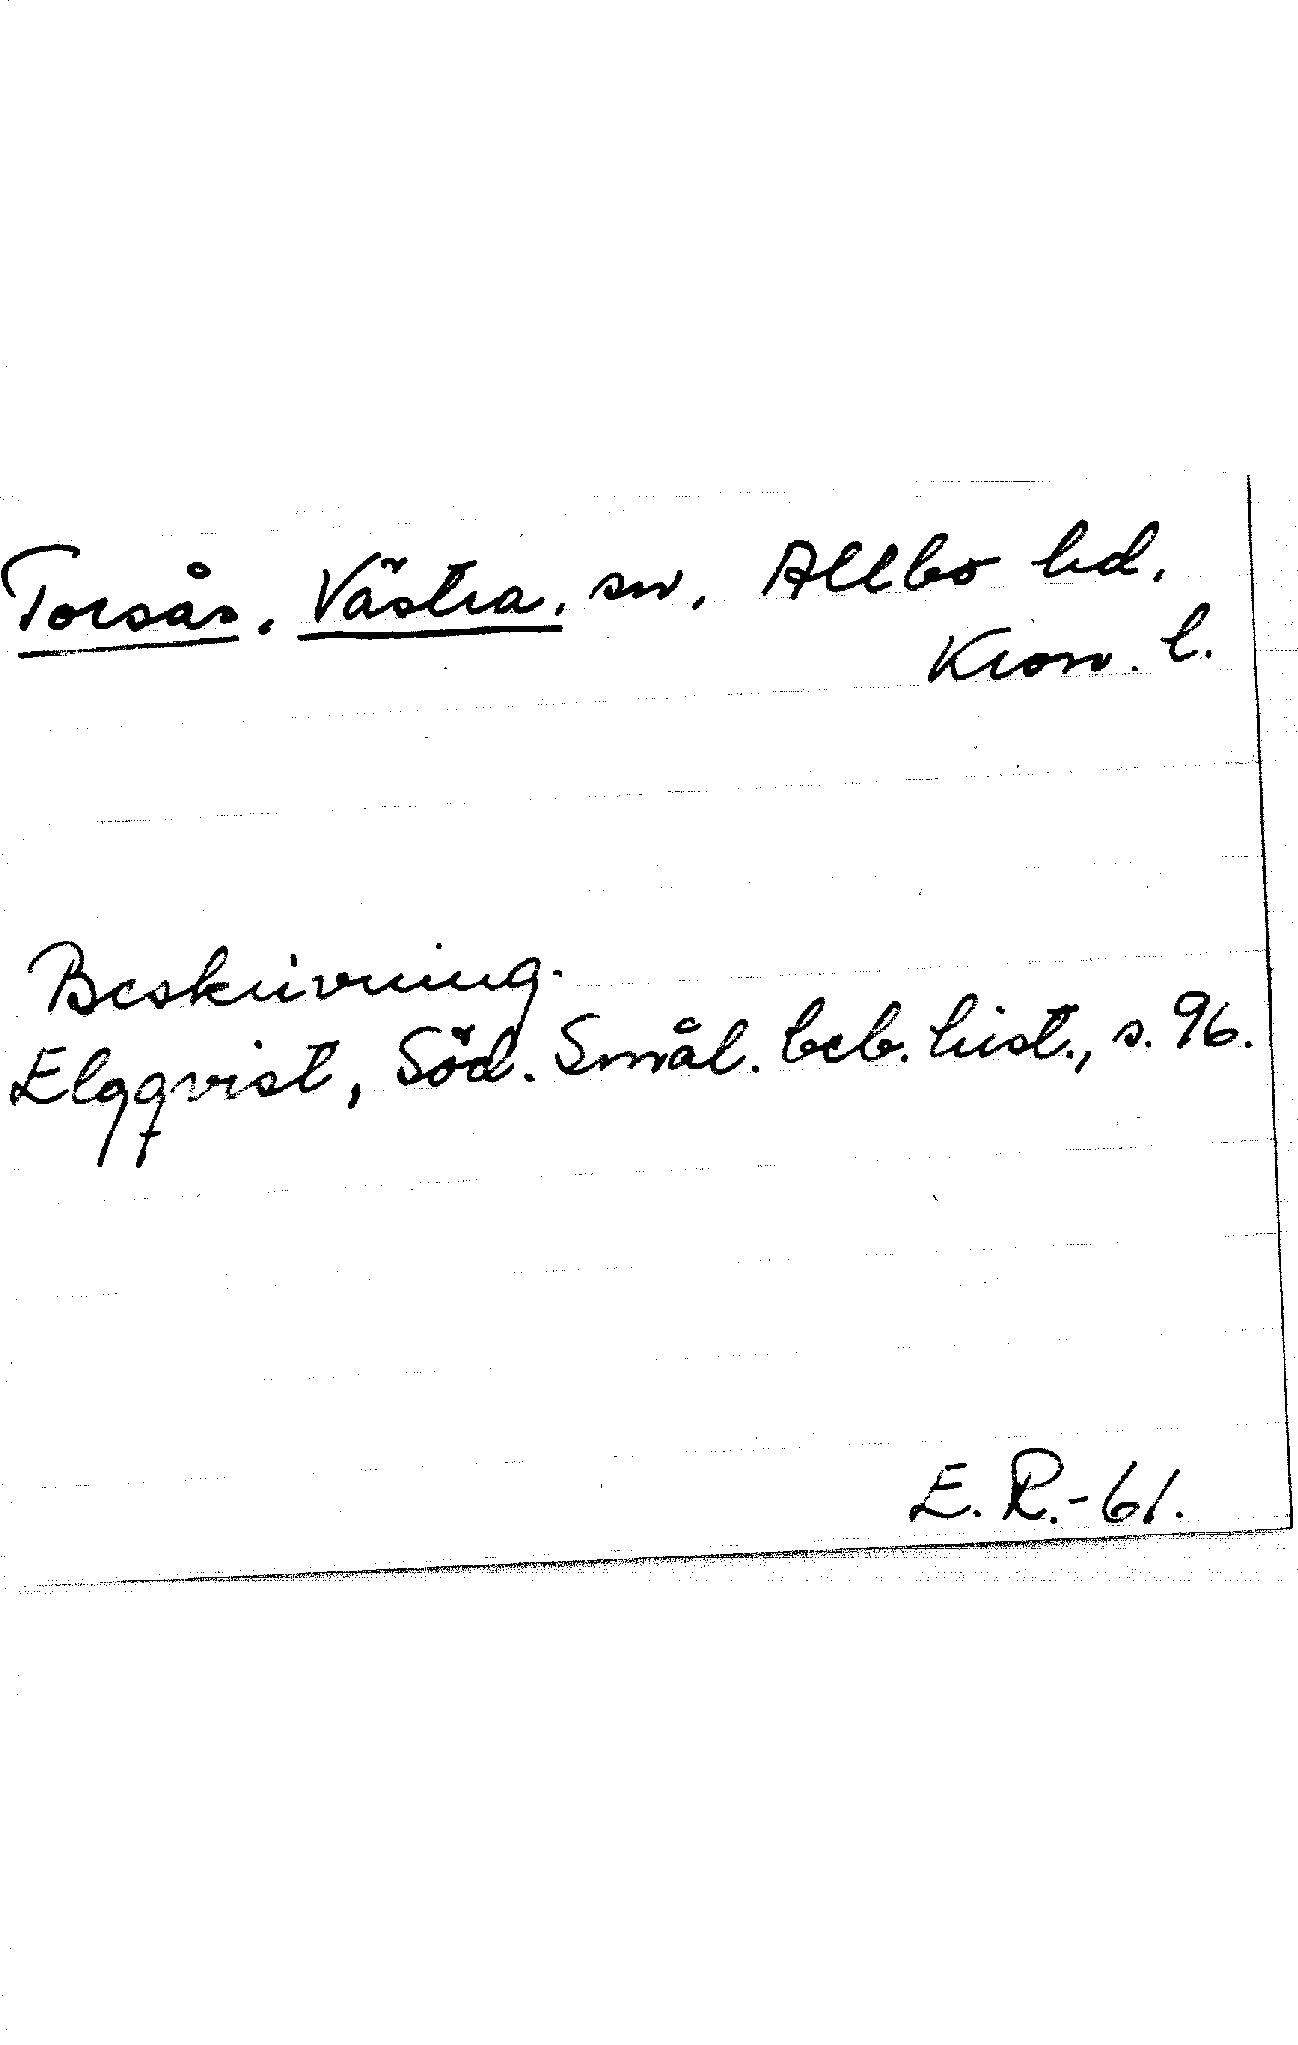 Torsås, Västra, sn, Allbo hd,
Kron. l.
Beskrivning.
Elgqvist, Söd. Smål. beb. hist., s. 96.
E. R.-61.